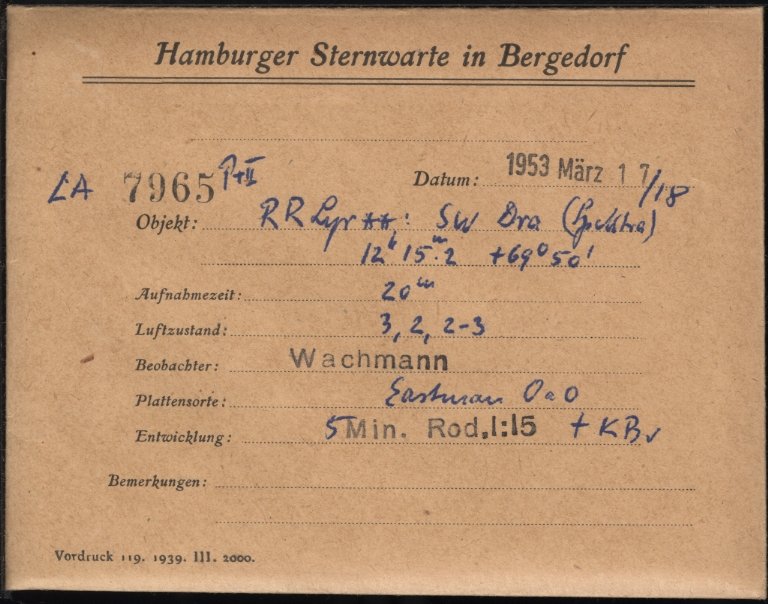 Hamburger Sternwarte in Bergedorf
LA 7965 P+II Datum: 1953 März 17/18
Objekt: RR Lyr **: SW Dra (Spektra)
12h 15m.2 +69° 50'
Aufnahmezeit: 20m
Luftzustand: 3, 2, 2-3
Beobachter: Wachmann
Plattensorte: Eastman OaO
Entwicklung: 5 Min. Rod, 1:15 + KBr
Bemerkungen:
Vordruck 119. 1939. III. 2000.